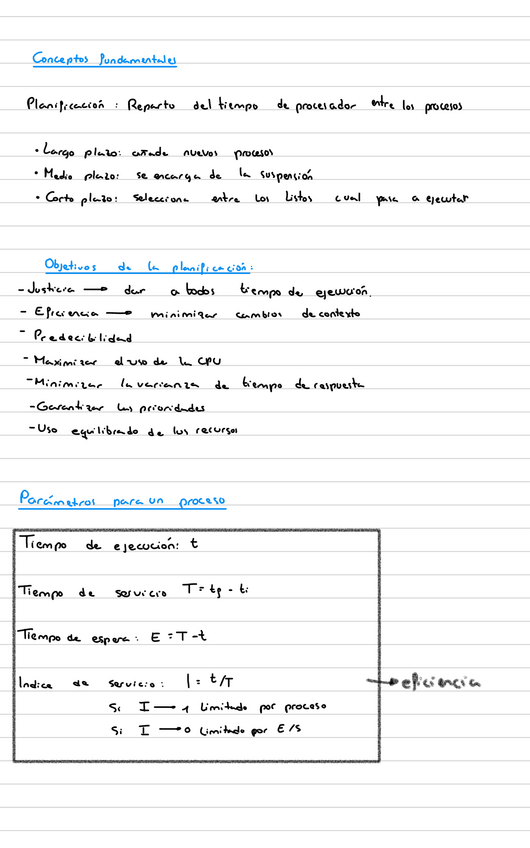 Conceptos fundamentales
Planificación : Reparto del tiempo de procesador entre los procesos
• Largo plazo: añade nuevos procesos
• Medio plazo: se encarga de la suspensión
• Corto plazo: selecciona entre los listos cual pasa a ejecutar
Objetivos de la planificación:
- Justicia → dar a todos tiempo de ejecución.
- Eficiencia → minimizar cambios de contexto
- Predecibilidad
- Maximizar el uso de la CPU
- Minimizar la varianza de tiempo de respuesta
- Garantizar las prioridades
- Uso equilibrado de los recursos
Parámetros para un proceso
Tiempo de ejecución: t
Tiempo de servicio T = tf - ti
Tiempo de espera: E = T - t
Indice de servicio: I = t/T → eficiencia
Si I → 1 Limitado por proceso
Si I → 0 Limitado por E/S